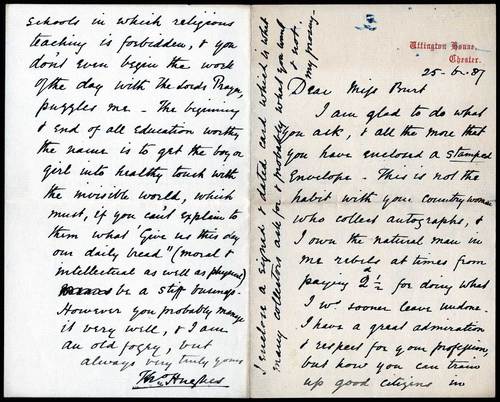 Uffington House,
Chester.
25-6-87
Dear Miss Burt
I am glad to do what
you ask, & all the more that
you have enclosed a stamped
Envelope - This is not the
habit with your countrywomen
who collect autographs, &
I own the natural man in
me rebels at times from
paying 2 1/2 d for doing what
I wd sooner leave undone.
I have a great admiration
& respect for your profession,
but how you can train
up good citizens in
schools in which religious
teaching is forbidden, & you
don't even begin the work
of the day with the Lords Prayer,
puzzles me - The beginning
& end of all education worthy
the name is to get the boy or
girl into healthy touch with
the invisible world, which
must, if you can't explain to
them what 'Give us this day
our daily bread" (moral &
intellectual as well as physical)
be a stiff business.
However you probably manage
it very well, & I am
an old fogey, but
always very truly yours
Thos Hughes
I enclose a signed & dated card which is what
many collectors ask for & probably what you want
& not
my